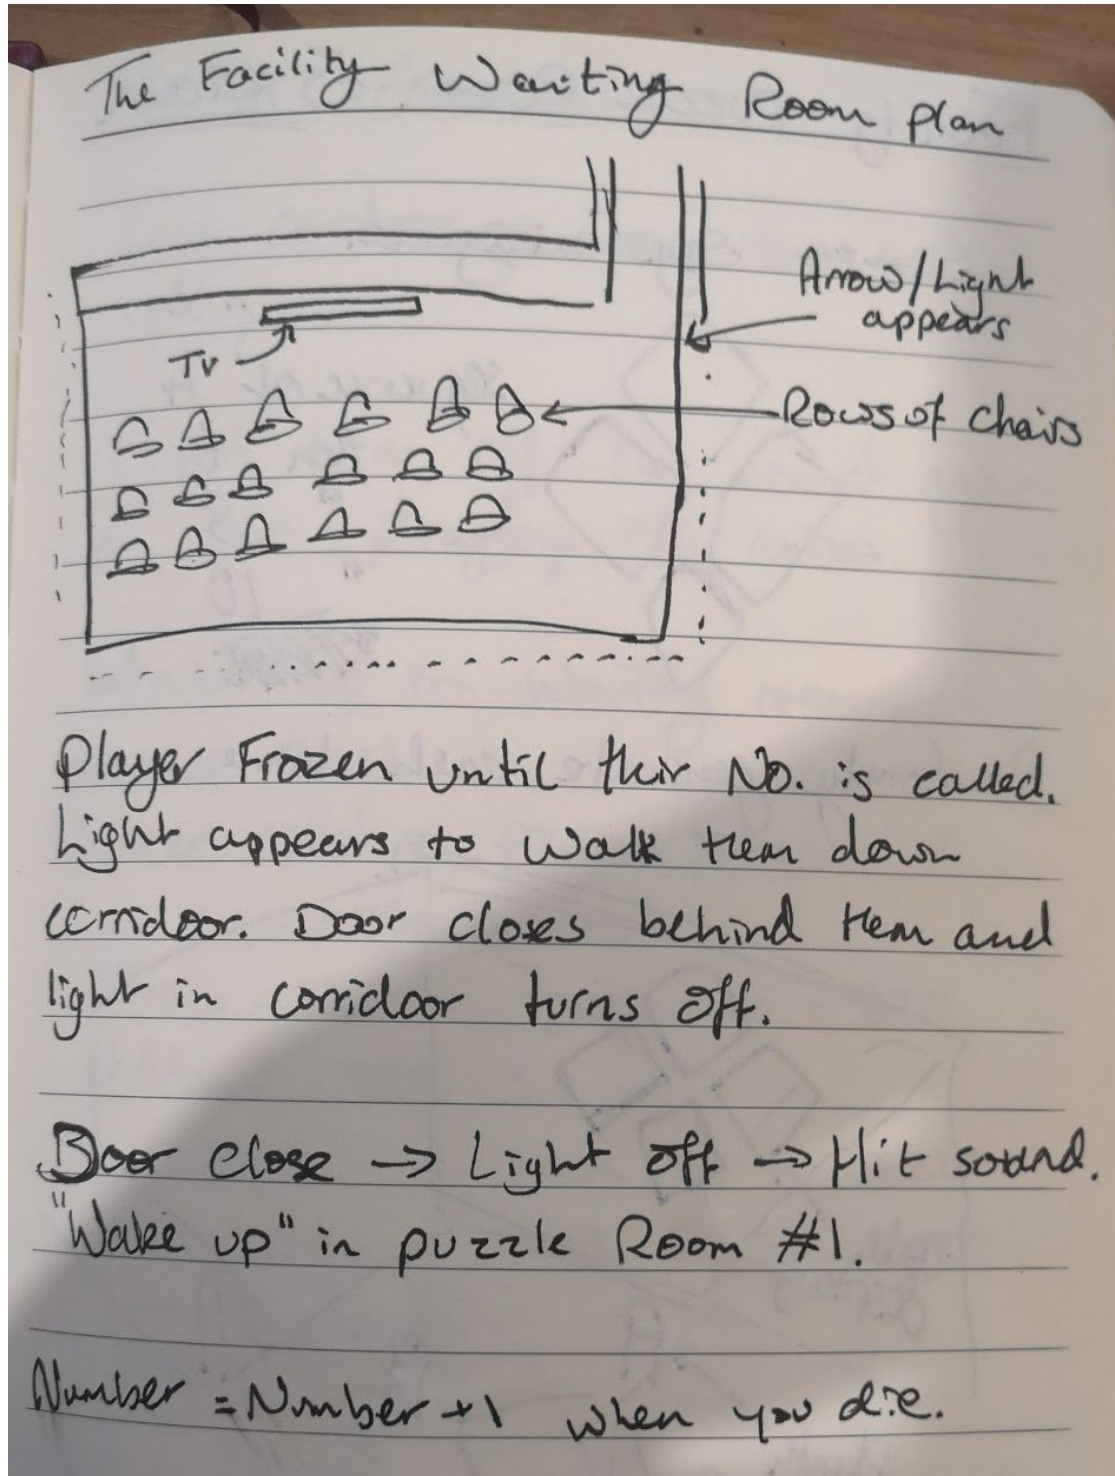 The Facility Waiting Room Plan
Arrow/Light
appears
TV
Rows of Chairs
Player Frozen until their No. is called.
Light appears to walk them down
corridoor. Door closes behind them and
light in corridoor turns off.
Door close → Light off → Hit sound.
"Wake up" in puzzle Room #1.
Number = Number +1 when you die.